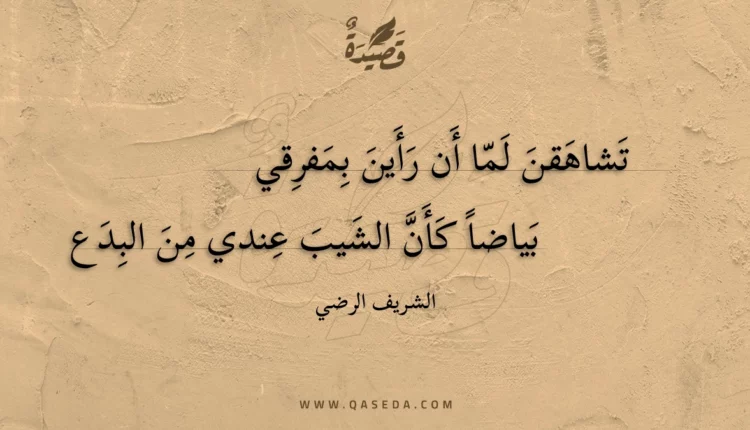 قَصِيدَةٌ
تَشاهَقنَ لَمّا أَن رَأَينَ بِمَفرِقي
بَياضاً كَأَنَّ الشَيبَ عِندي مِنَ البِدَع
الشريف الرضي
WWW.QASEDA.COM